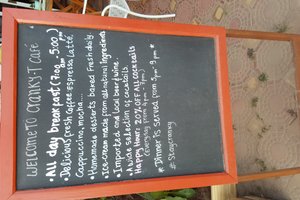 WELCOME TO CRANKS-T CAFÉ
• All day breakfast (7:00am - 5:00pm)
• Delicious fresh coffee: Espresso, Latté,
Cappuccino, mocha...
• Homemade desserts baked fresh daily.
• Ice-cream made from all natural ingredients
• Imported and local beer/wine.
• Wide selection of cocktails
Happy Hour: 20% OFF ALL cocktails
(everyday from 4pm - 7pm)
* Dinner is served from 5pm - 9pm *